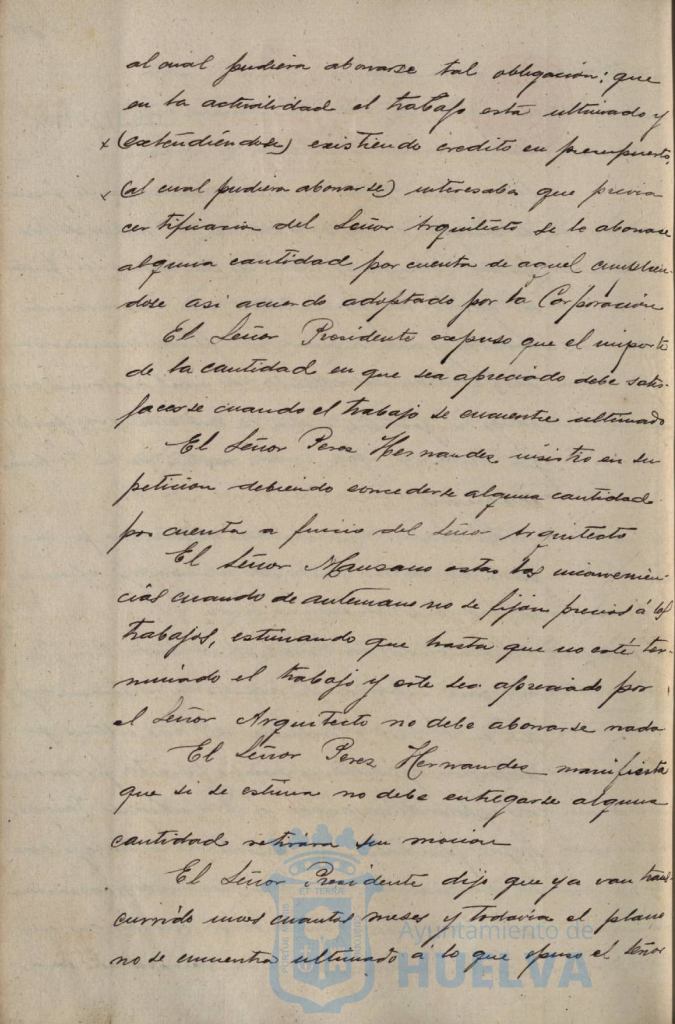 al cual pudiera abonarse tal obligación; que
en la actualidad el trabajo está ultimado y
x (extendiéndose) existiendo credito en presupuesto,
x (al cual pudiera abonarse) interesaba que previa
certificacion del Señor Arquitecto se le abonase
alguna cantidad por cuenta de aquel cumplien-
dose asi acuerdo adoptado por la Corporación
El Señor Presidente expuso que el importe
de la cantidad en que sea apreciado debe satis-
facerse cuando el trabajo se encuentre ultimado
El Señor Perez Hernandez insistio en su
peticion debiendo concederse alguna cantidad
por cuenta a juicio del Señor Arquitecto
El Señor Manzano las inconvenien-
cias cuando de antemano no se fijan precios á los
trabajos, estimando que hasta que no esté ter-
minado el trabajo y este sea apreciado por
el Señor Arquitecto no debe abonarse nada
El Señor Perez Hernandez manifiesta
que si se estima no debe entregarse alguna
cantidad retirara su mocion
El Señor Presidente dijo que ya van trans-
currido unos cuantos meses y todavia el plano
no se encuentra ultimado á lo que opuso el Señor
PORTUS MARIS ET TERRAE CUSTODIA
Ayuntamiento de
HUELVA